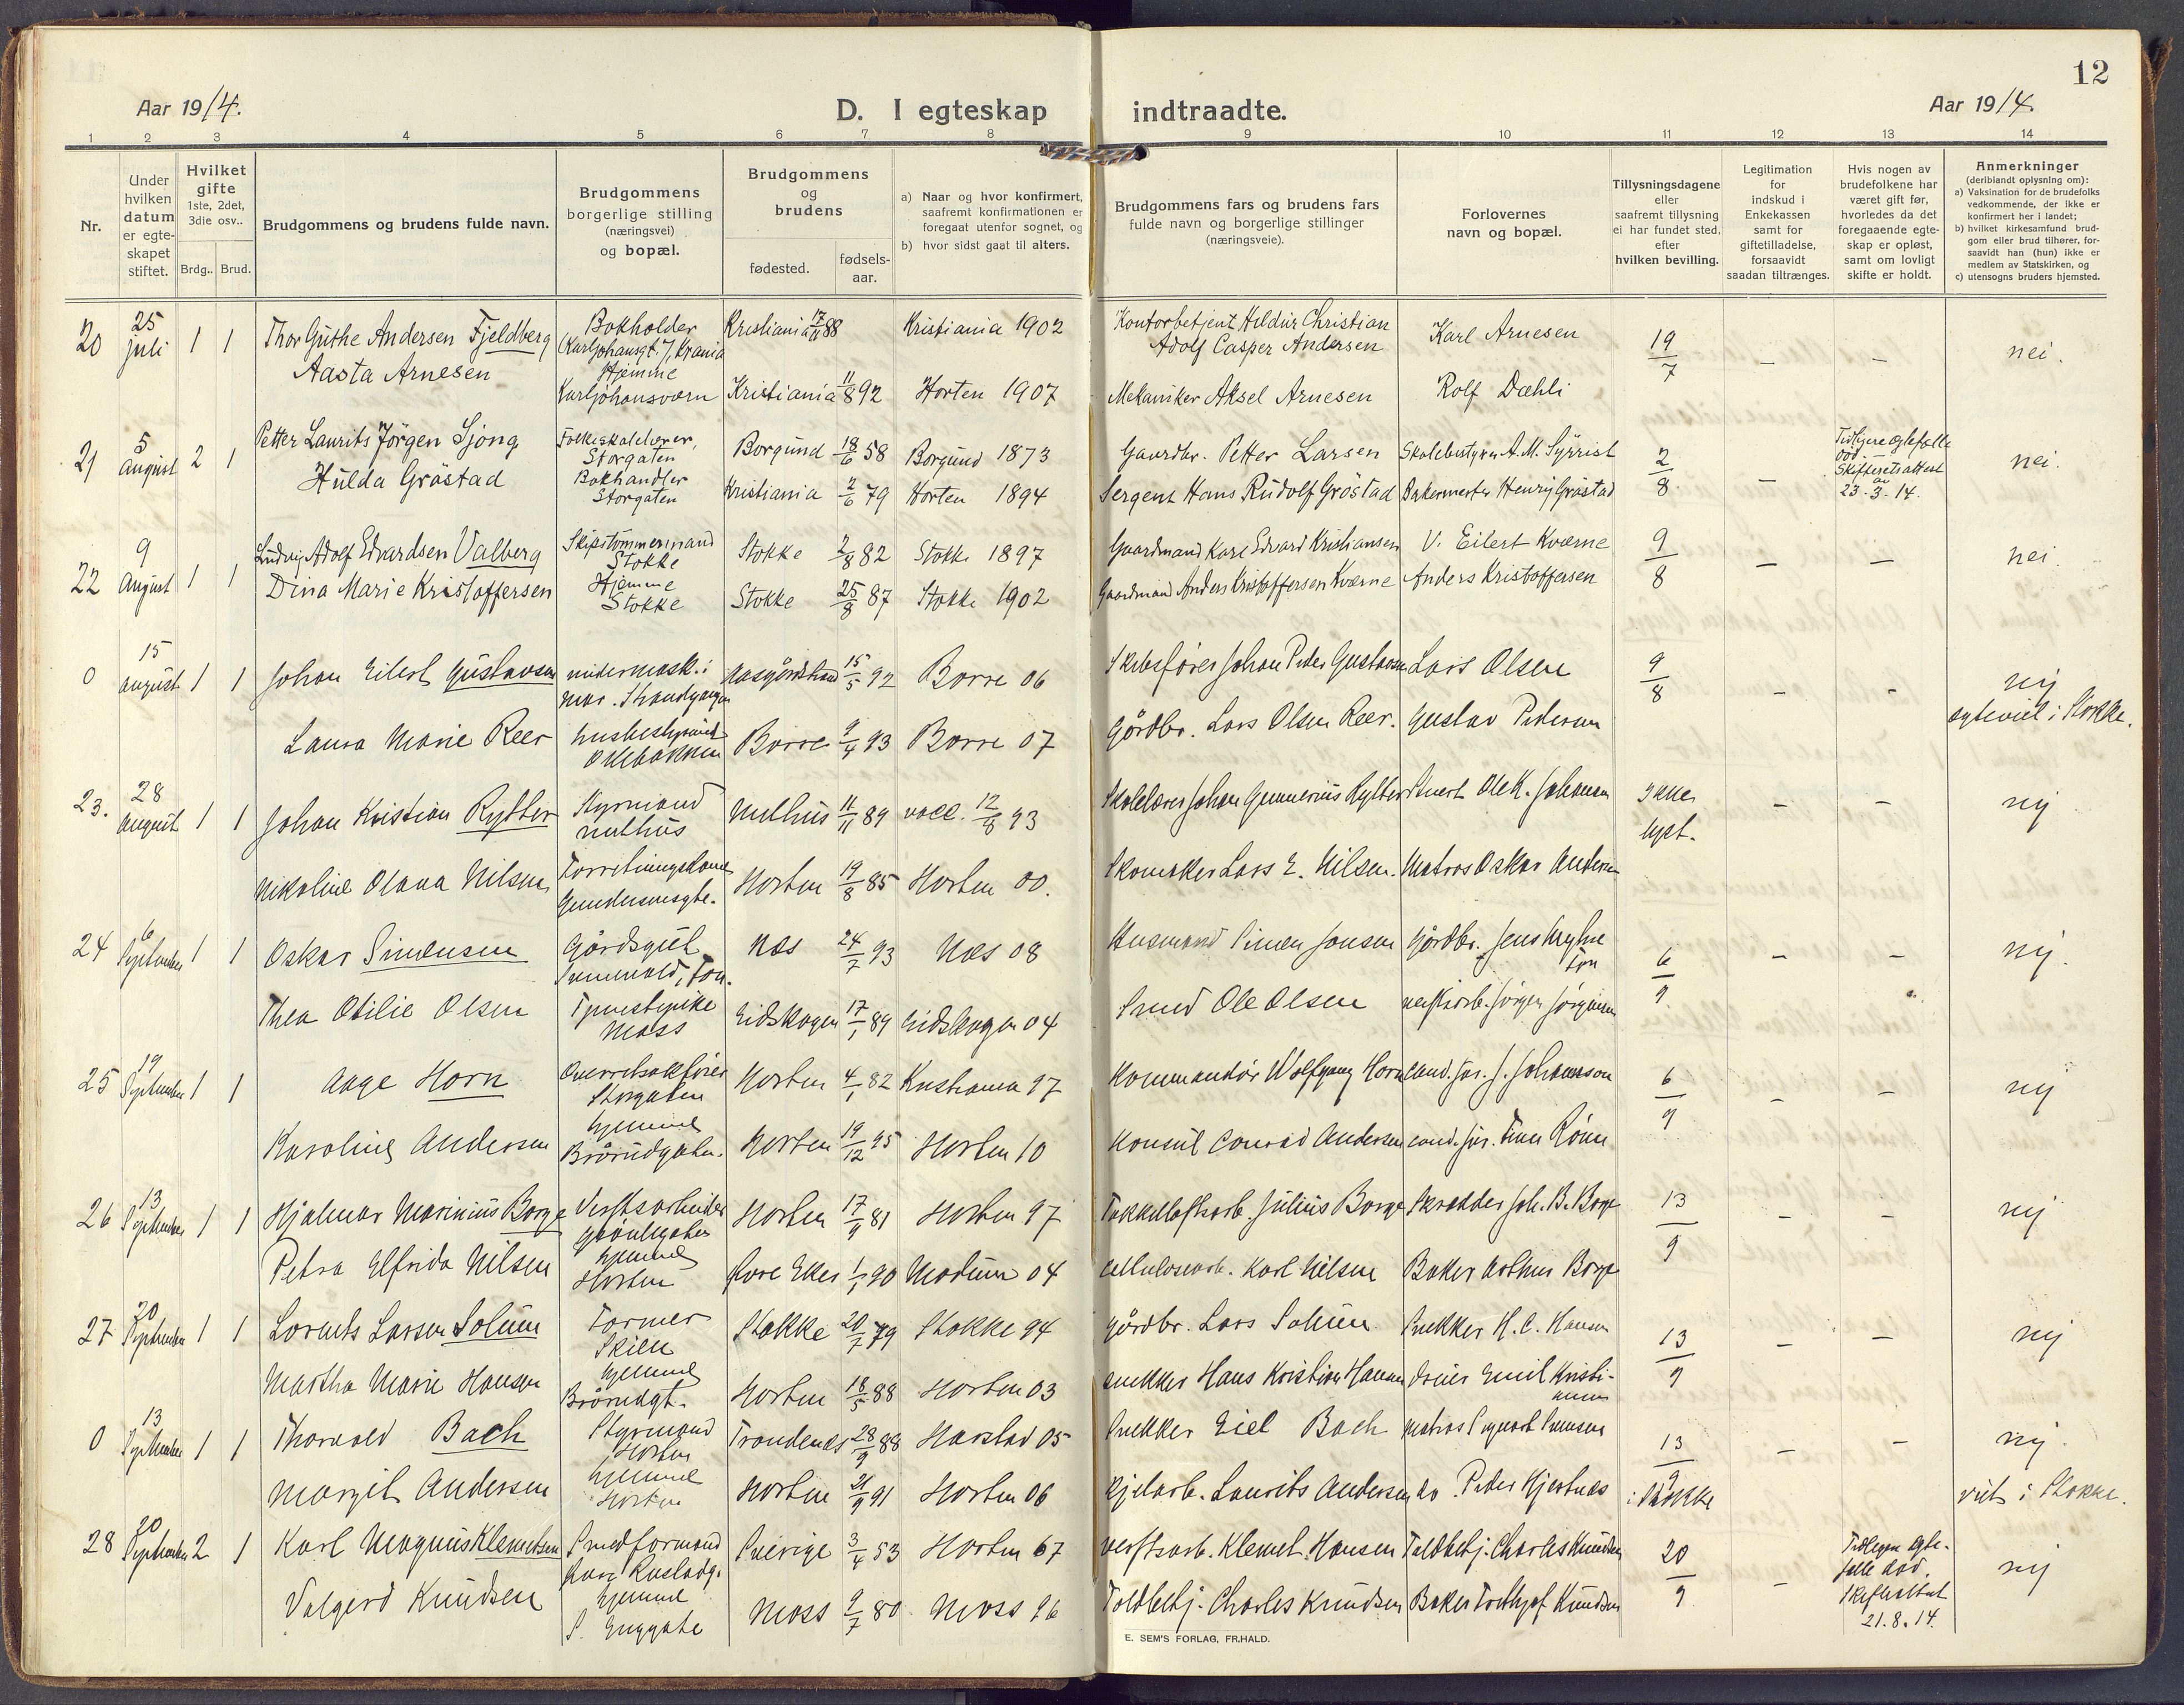 12
Aar 1914.
D. I egteskap indtraadte.
Aar 1914.
1 2 3 4 5 6 7 8 9 10 11 12 13 14
Nr.
Under
hvilken
datum
er egte-
skapet
stiftet.
Hvilket
gifte
1ste, 2det,
3die osv..
Brdg.. Brud.
Brudgommens og brudens fulde navn.
Brudgommens
borgerlige stilling
(næringsvei)
og bopæl.
Brudgommens
og
brudens
fødested.
fødsels-
aar.
a) Naar og hvor konfirmert,
saafremt konfirmationen er
foregaat utenfor sognet, og
b) hvor sidst gaat til alters.
Brudgommens fars og brudens fars
fulde navn og borgerlige stillinger
(næringsveie).
Forlovernes
navn og bopæl.
Tillysningsdagene
eller
saafremt tillysning
ei har fundet sted,
efter
hvilken bevilling.
Legitimation
for
indskud i
Enkekassen
samt for
giftetilladelse,
forsaavidt
saadan tiltrænges.
Hvis nogen av
brudefolkene har
været gift før,
hvorledes da det
foregaaende egte-
skap er opløst,
samt om lovligt
skifte er holdt.
Anmerkninger
(deriblandt oplysning om):
a) Vaksination for de brudefolks
vedkommende, der ikke er
konfirmert her i landet;
b) hvilket kirkesamfund brud-
gom eller brud tilhører, for-
saavidt han (hun) ikke er
medlem av Statskirken, og
c) utensogns bruders hjemsted.
20 25 juli 1 1 Thor Guthe Andersen Fjeldberg Bokholder Karljohansgt. 7, Krania Kristiania 88 Kristiania 1902 Kontorbetjent Hildur Christian Adolf Casper Andersen Karl Arnesen 19/7 – – nei.
Aasta Arnesen Hjemme Karljohansværn Kristiania 11/8 92 Horten 1907 Mekaniker Aksel Arnesen Rolf Dæhli
21 5 August 2 1 Petter Laurits Jørgen Sjong Folkeskolelærer, Storgaten Borgund 18/6 58 Borgund 1873 Gaardbr. Petter Larsen Skolebestyrer A. M. Syrrist 2/8 – Tidligere egtefælle død. – Skifteretsattest av 23.3.14. nei.
Hulda Gröstad Bokhandler Storgaten Kristiania 2/6 79 Horten 1894 Sergent Hans Rudolf Gröstad Bakermester Henry Gröstad
22 9 August 1 1 Ludvig Adolf Edvardsen Valberg Skipstømmermand Stokke Stokke 2/8 82 Stokke 1897 Gaardmand Karl Edvard Kristiansen V. Eilert Kværne 9/8 – – nei
Dina Marie Kristoffersen Hjemme Stokke Stokke 25/8 87 Stokke 1902 Gaardmand Anders Kristoffersen Kværne Anders Kristoffersen
0 15 august 1 1 Johan Eilert Gustavsen undermask. i mar. Strandgaten Aasgårdstrand 15/5 92 Borre 06 Skibsfører Johan Peder Gustavsen Lars Olsen 9/8 – – nej
egteviet i Stokke.
Laura Marie Reer Borre 9/4 93 Borre 07 Gårdbr. Lars Olsen Reer. Gustav Pedersen
23. 28 august 1 1 Johan Kristian Rytter Styrmand 11/11 89 vacc. 12/8 93 Skolelærer Johan Gunnerius Rytter Stuert Ole K. Johansen lyst. – – nej
Nikoline Olava Nilsen Horten 19/8 85 Horten 00. Skomaker Lars E. Nilsen. Matros Oskar Andersen
24 6 September 1 1 Oskar Simensen Gårdsgut Næs 24/7 93 Næs 08 Husmand Simen Jonsen Gårdbr. Jens 6/9 – – nej.
Thea Otilie Olsen Tjenestepike Moss Eidskogen 17/1 89 Eidskogen 04 Smed Ole Olsen verftsarb. Jørgen Jørgensen
25 19 September 1 1 Aage Horn Overretssakfører Storgaten Horten 4/1 82 Kristiania 97 Kommandør Wolfgang Horn cand. jur. J. Johannson 6/9 – – nej
Karoline Andersen hjemme Brårudgaten. Horten 19/12 95 Horten 10 Konsul Conrad Andersen cand. jur. Finn Rönn
26 13 September 1 1 Hjalmar Marinius Borge Verftsarbeider Horten 17/9 81 Horten 97 Takkelloftsarb. Julius Borge Skrædder Joh. B. Borge 13/9 – – nej
Petra Elfrida Nilsen hjemme Horten Øvre Eker 1/1 90 Modum 04 Cellulosearb. Karl Nilsen Baker Arthur Borge
27 20 September 1 1 Lorents Larsen Solum Former Skien Stokke 20/7 79 Stokke 94 gårdbr. Lars Solum Snekker H. C. Hansen 13/9 – – nej
Martha Marie Hansen hjemme Brårudgt. Horten 18/5 88 Horten 03 snekker Hans Kristian Hansen dreier Emil Kristi-
ansen
0 13 September 1 1 Thorvald Bach Styrmand Horten Trondenes 28/9 88 Harstad 05 Snekker Eiel Bach matros Sigvart Svensen 13/9 i Stokke – – nej.
viet i Stokke.
Margit Andersen hjemme Horten Horten 21/9 91 Horten 06 Kjelarb. Laurits Andersen do Peder Hjertnæs
28 20 September 2 1 Karl Magnus Klemetsen Smedformand Sverige 3/4 53 Horten 67 verftsarb. Klemet Hansen Toldbetj. Charles Knudsen 20/9 – Tidligere egte-
fælle død.
Skifteattest
21.8.14. nej
Valgerd Knudsen hjemme S. Enggate Moss 9/7 80 Moss 96 Toldbetj. Charles Knudsen Baker Frithjof Knudsen
E. SEM'S FORLAG, FR.HALD.